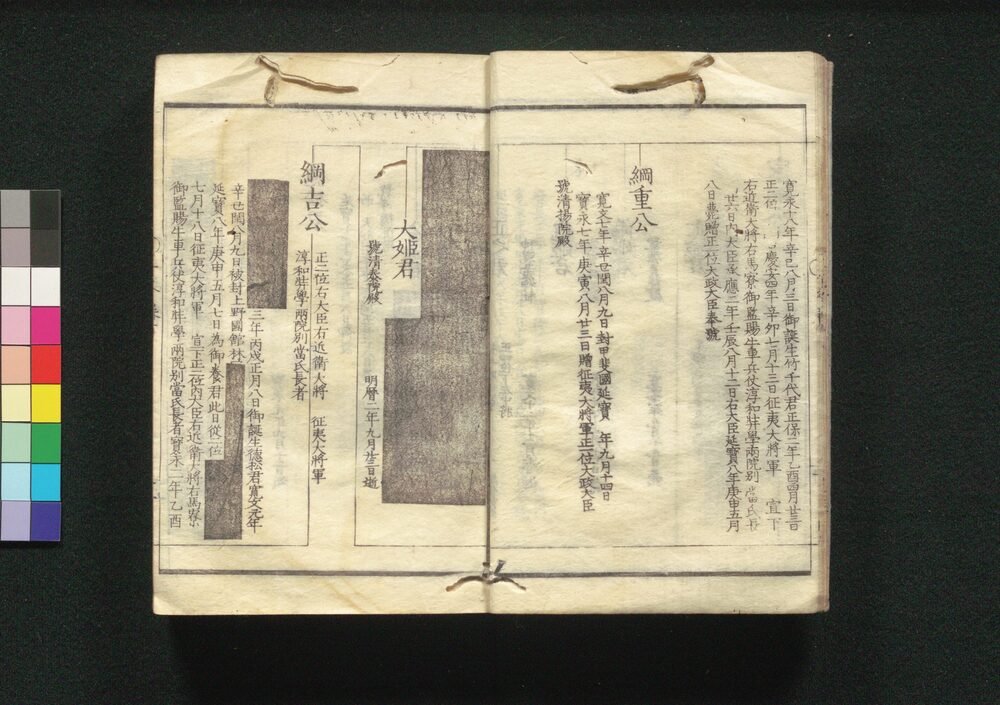 寛永十八年辛巳八月三日御誕生竹千代君正保二年乙酉四月廿三日
正二位 慶安四年辛卯七月十三日征夷大將軍 宣下
右近衛大將右馬寮御監賜牛車兵仗淳和奬學兩院別當氏長
廿六日内大臣承應二年壬辰八月十二日右大臣延寶八年庚申五月
八日薨贈正一位大政大臣奉號
綱重公
寛文十年辛亥閏八月九日封甲斐國延寶 年九月十四日
寳永七年庚寅八月廿三日贈征夷大將軍正一位大政大臣
號清揚院殿
大姫君
號清泰院殿
明暦二年九月廿三日逝
綱吉公
正二位右大臣右近衛大將 征夷大將軍
淳和奬學兩院別當氏長者
三年丙戌正月八日御誕生德松君寛文元年
辛丑閏八月九日被封上野國館林
延寶八年庚申五月七日為御養君此日從二位
七月十八日征夷大將軍 宣下正二位内大臣右近衛大將右馬寮
御監賜牛車兵仗淳和奬學兩院別當氏長者寳永二年乙酉